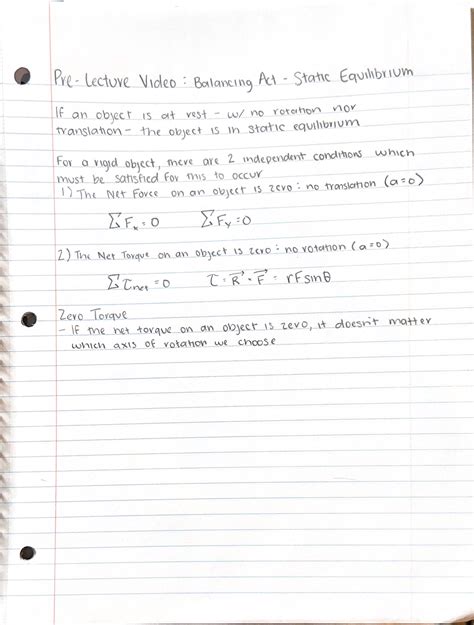 Pre-Lecture Video: Balancing Act - Static Equilibrium
If an object is at rest - w/ no rotation nor
translation - the object is in static equilibrium
For a rigid object, there are 2 independent conditions which
must be satisfied for this to occur
1) The Net Force on an object is zero: no translation (a=0)
∑Fₓ=0 ∑Fᵧ=0
2) The Net Torque on an object is zero: no rotation (a=0)
∑τnet=0 τ=R⃗·F⃗ = rFsinθ
Zero Torque
- If the net torque on an object is zero, it doesn't matter
which axis of rotation we choose